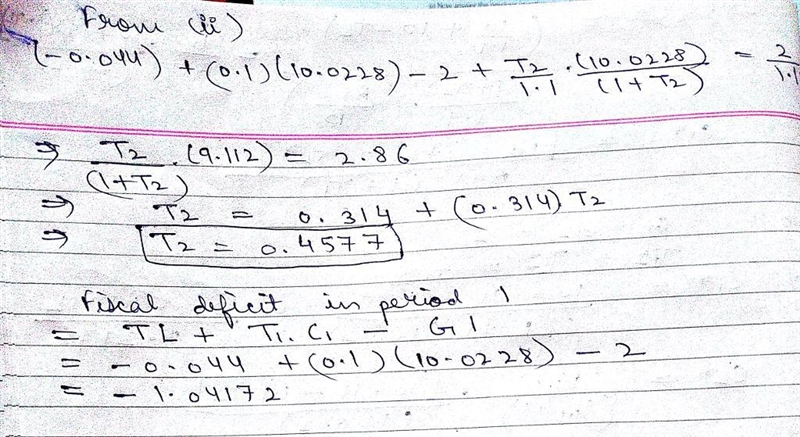 From (ii)
(-0.044) + (0.1)(10.0228) - 2 + T2/1.1 . (10.0228)/(1+T2) = 2/1.1
⇒ T2/(1+T2) . (9.112) = 2.86
⇒ T2 = 0.314 + (0.314) T2
⇒ T2 = 0.4577
Fiscal deficit in period 1
= TL + T1.C1 - G1
= -0.044 + (0.1)(10.0228) - 2
= -1.04172